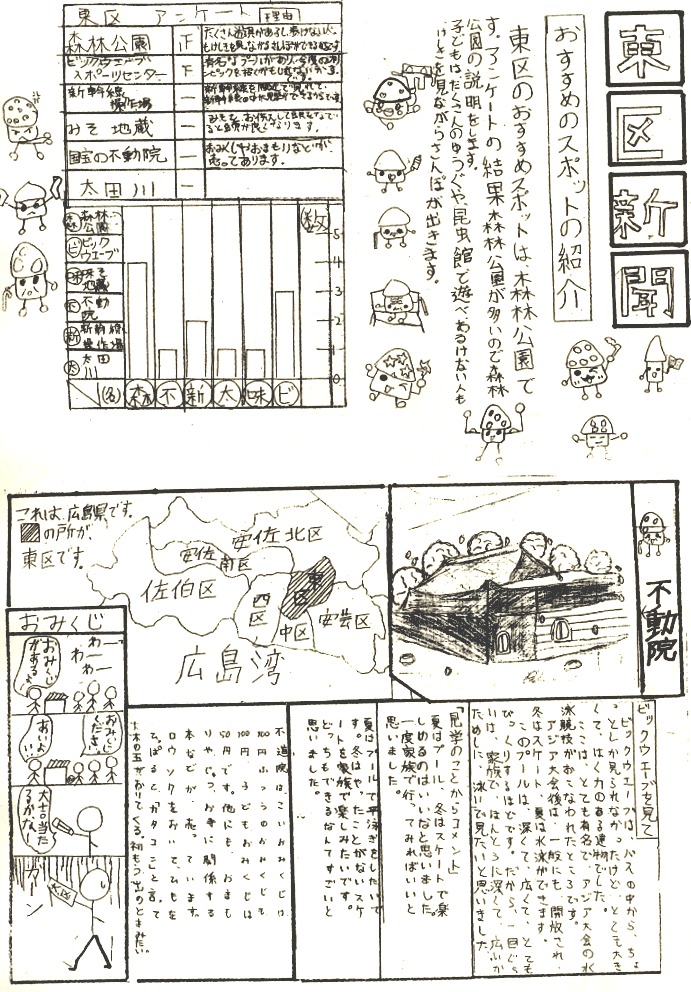 東区新聞
おすすめのスポットの紹介
東区のおすすめスポットは、森林公園で
す。アンケートの結果森林公園が多いので森林
公園の説明をします。
子どもは、たくさんのゆうぐや、昆虫館で遊べ、あるけない人も
けしきを見ながらさんぽが出きます。
東区 アンケート 理由
森林公園 正
ビックウェーブ
スポーツセンター 下
新幹線
操作場 一
みそ 地蔵 一
国宝の不動院 一
おみくじやおまもりなどが、
売ってあります。
太田川 一
数
5
4
3
2
1
0
森 森林
公園
ビ ビック
ウエーブ
味 味そ
地蔵
不 不動
院
新 新幹線
操作場
太 太田
川
(名) 森 不 新 太 味 ビ
不動院
これは、広島県です。
の所が、
東区です。
安佐北区
安佐
南区
佐伯区
西区
東区
中区
安芸区
広島湾
おみくじ
わー
わー
わー
おみくじ
があるよ
おみくじ
ください。
はい
どうぞ
大吉当た
るかな
ガーン
大凶
ビックウエーブを見て
ビックウエーブは、バスの中から、ちょ
っとしか見られなかったけど、とても大き
くて、はく力のある建物でした。
ここは、とても有名で、アジア大会の水
泳競技がおこなわれたところです。
アジア大会後は、一般にも、開放され、
冬はスケート、夏は水泳ができます。
このプールは、深くて、広くて、とても
びっくりするほどです。だから、一回ぐら
いは、家族で、ほんとうに深くて、広いか
ためしに、泳いで見たいと思いました。
「見学のことからコメント」
夏はプール、冬はスケートで楽
しめるのはいいなと思いました。
一度家族で行ってみればいいと
思いました。
夏は、プールで平泳ぎをしたいで
す。冬はやったことがないスケ
ートを家族で楽しみたいです。
どっちもできるなんてすごいと
思いました。
不道院は、こいおみくじは
100円、ふつうのおみくじも
100円、子どもおみくじは
50円です。他にも、おまも
りや、じゅず、お寺に関係する
本などが、売っています。